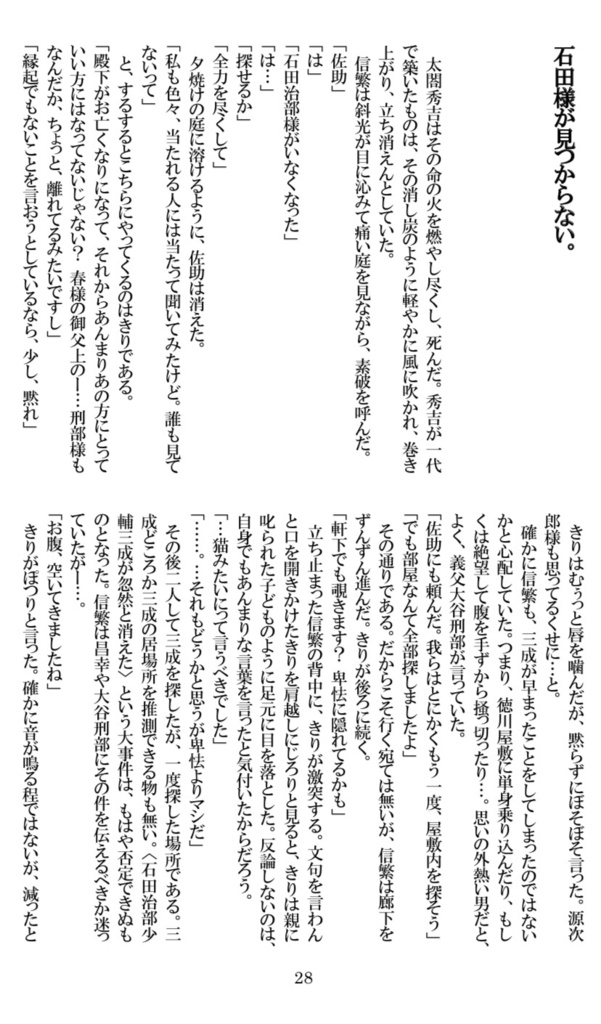 石田様が見つからない。
　太閤秀吉はその命の火を燃やし尽くし、死んだ。秀吉が一代
で築いたものは、その消し炭のように軽やかに風に吹かれ、巻き
上がり、立ち消えんとしていた。
　信繁は斜光が目に沁みて痛い庭を見ながら、素破を呼んだ。
「佐助」
「は」
「石田治部様がいなくなった」
「は…」
「探せるか」
「全力を尽くして」
　夕焼けの庭に溶けるように、佐助は消えた。
「私も色々、当たれる人には当たって聞いてみたけど。誰も見て
ないって」
　と、するするとこちらにやってくるのはきりである。
「殿下がお亡くなりになって、それからあんまりあの方にとって
いい方にはなってないじゃない？　春様の御父上のー……刑部様も
なんだか、ちょっと、離れてるみたいですし」
「縁起でもないことを言おうとしているなら、少し、黙れ」
　きりはむぅっと唇を噛んだが、黙らずにぼそぼそ言った。源次
郎様も思ってるくせに…と。
　確かに信繁も、三成が早まったことをしてしまったのではない
かと心配していた。つまり、徳川屋敷に単身乗り込んだり、もし
くは絶望して腹を手ずから掻っ切ったり…。思いの外熱い男だと、
よく、義父大谷刑部が言っていた。
「佐助にも頼んだ。我らはとにかくもう一度、屋敷内を探そう」
「でも部屋なんて全部探しましたよ」
　その通りである。だからこそ行く宛ては無いが、信繁は廊下を
ずんずん進んだ。きりが後ろに続く。
「軒下でも覗きます？　卑怯に隠れてるかも」
　立ち止まった信繁の背中に、きりが激突する。文句を言わん
と口を開きかけたきりを肩越しにじろりと見ると、きりは親に
叱られた子どものように足元に目を落とした。反論しないのは、
自身でもあんまりな言葉を言ったと気付いたからだろう。
「…猫みたいにって言うべきでした」
「……。…それもどうかと思うが卑怯よりマシだ」
　その後二人して三成を探したが、一度探した場所である。三
成どころか三成の居場所を推測できる物も無い。〈石田治部少
輔三成が忽然と消えた〉という大事件は、もはや否定できぬも
のとなった。信繁は昌幸や大谷刑部にその件を伝えるべきか迷っ
ていたがー…。
「お腹、空いてきましたね」
　きりがぽつりと言った。確かに音が鳴る程ではないが、減ったと
28